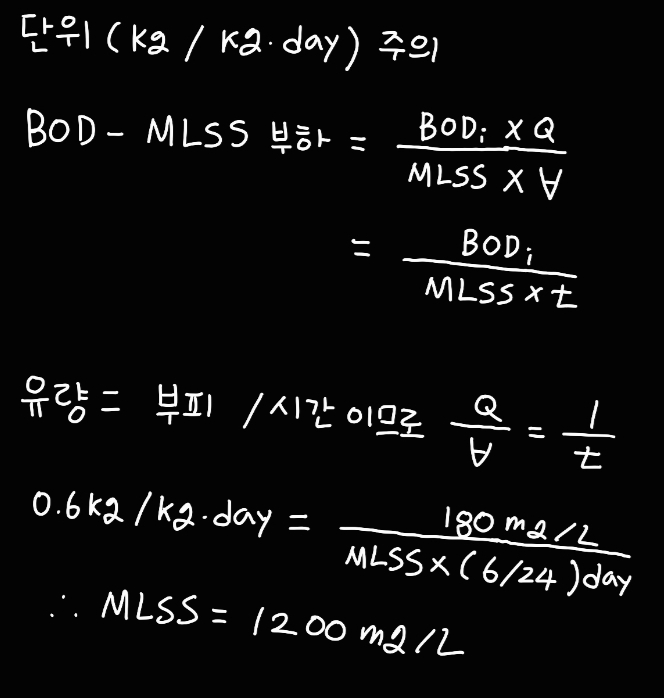 단위 (kg / kg·day) 주의
BOD - MLSS 부하 = (BODᵢ × Q) / (MLSS × ∀)
= BODᵢ / (MLSS × t)
유량 = 부피 / 시간 이므로 Q/∀ = 1/t
0.6kg/kg·day = 180mg/L / (MLSS×(6/24)day)
∴ MLSS = 1200mg/L